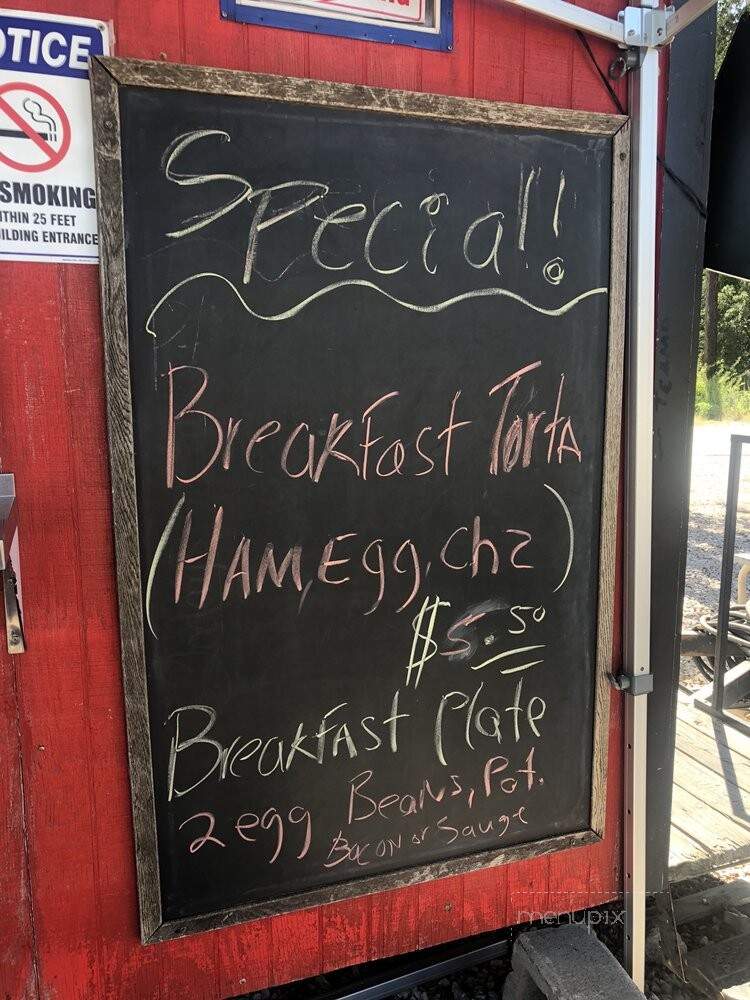 OTICE
SMOKING
ITHIN 25 FEET
ILDING ENTRANCE
Special!
Breakfast Torta
(HAM, Egg, Chz)
$5.50
Breakfast Plate
2 egg Beans, Pot.
Bacon or Sauge
menupix